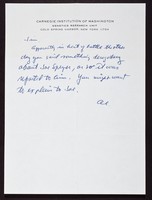 CARNEGIE INSTITUTION OF WASHINGTON
GENETICS RESEARCH UNIT
COLD SPRING HARBOR, NEW YORK 11724
Jim
Apparently in heat of battle the other
day you said something derogatory
about Joe Speyer, or so it was
reported to him. You might want
to explain to Joe.
Al